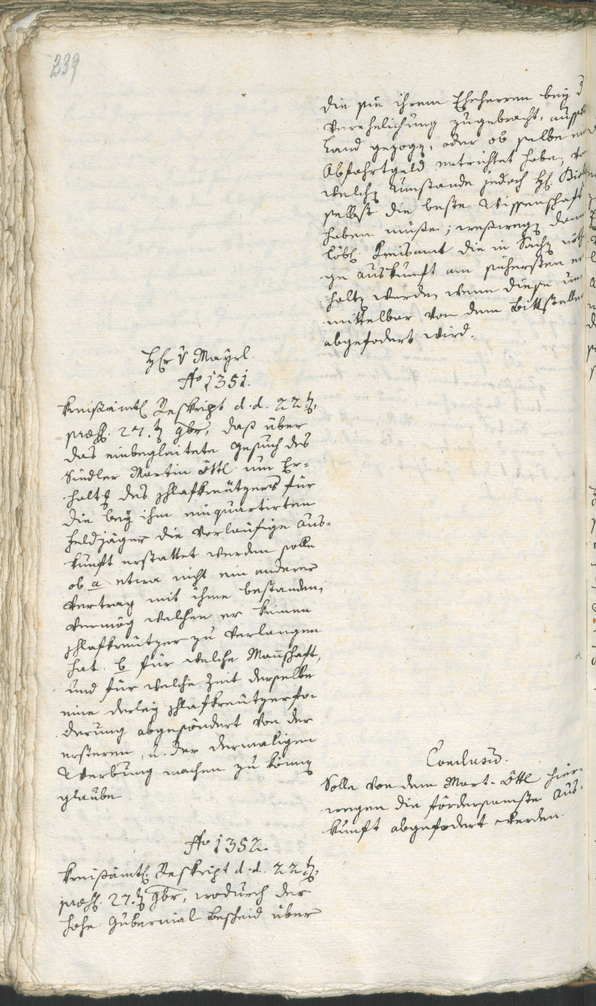 239
die sie ihrem Eheherren bey d
Verehelichung zugebracht, ausser
Land gezogen, oder ob selbe ein
Abfahrtgeld entrichtet habe,
welche Umstände jedoch H:
selbst die beste Wissenschaft
haben müsse; weßwegen dem
löbl: Kreisamt die in Sache nöthi-
ge Auskunft am sichersten er
halten werden wenn diese un
mittelbar von dem Bittsteller
abgefodert wird.
H: v Mayrl.
No 1351.
Kreisämtl: Reskript d. d. 22t
præs: 27.t 9br, daß über
das einbegleitete Gesuch des
Sindler Martin Öttl um Er-
haltg des Schlafkreutzers für
die bey ihm einquartirten
Feldjäger die vorläufige Aus-
kunft erstattet werden solle
ob a etwa nicht ein anderer
Vertrag mit ihme bestanden,
vermög welchen er keinen
Schlafkreutzer zu verlangen
hat. b für welche Mannschaft,
und für welche Zeit derselbe
eine derley Schlafkreutzerfo-
derung abgesöndert von der
ersteren, u. der dermaligen
Werbung machen zu können
glaube
Conclusum.
Solle von dem Mart. Öttl hier-
wegen die fördersamste Aus-
kunft abgefodert werden.
No 1352.
Kreisämtl: Reskript d. d. 22t
præs: 27.t 9br, wodurch der
hohe Gubernial Bescheid über